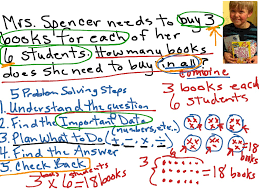 Mrs. Spencer needs to buy 3
books for each of her
6 students. How many books
does she need to buy in all?
combine
5 Problem Solving Steps
3 books each
6 students
1. Understand the question
2. Find the Important Data
(numbers, etc..)
3. Plan What to Do + - × ÷
4. Find the Answer
5. Check Back
= 18 books
3 books × 6 students = 18 books
3
= 18 books
6